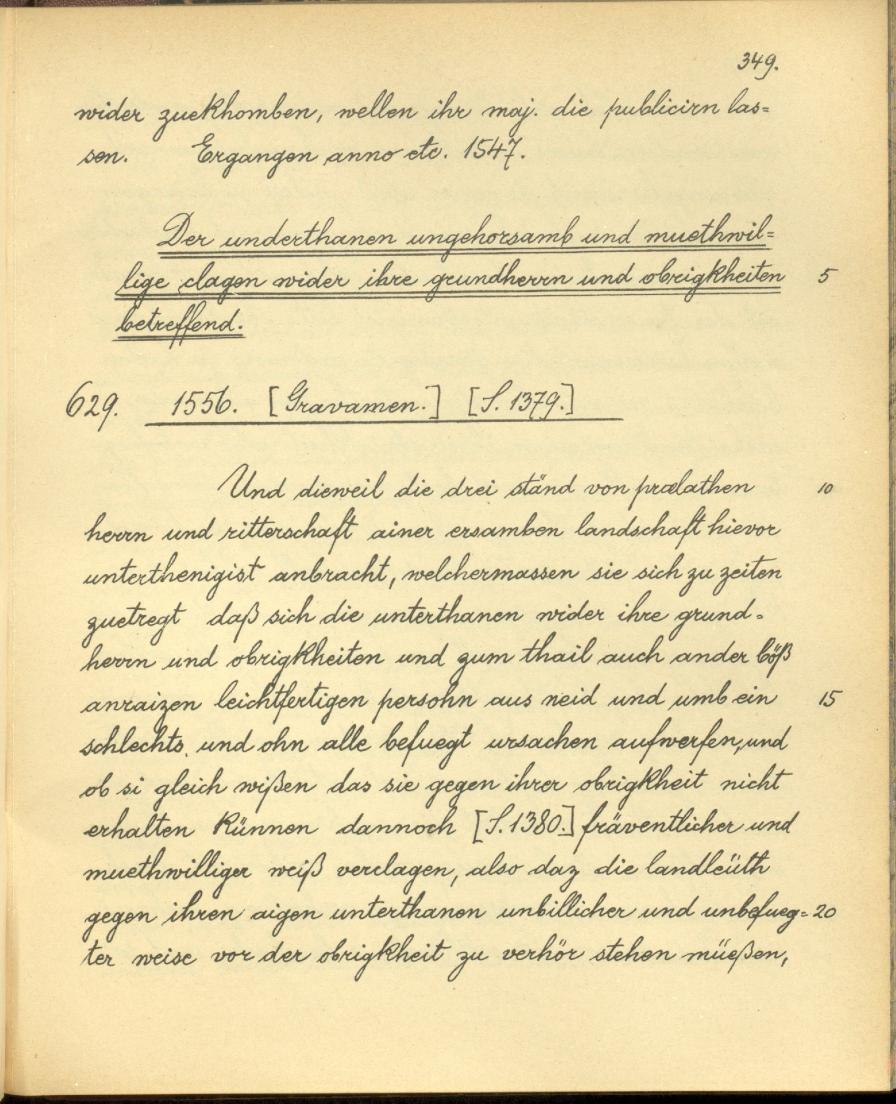 349.
wider zuekhomben, wellen ihr maj. die publicirn las=
sen. Ergangen anno etc. 1547.
Der underthanen ungehorsamb und muethwil=
lige clagen wider ihre grundherrn und obrigkheiten 5
betreffend.
629. 1556. [Gravamen.] [S. 1379.]
Und dieweil die drei ständ von prælathen 10
herrn und ritterschaft ainer ersamben landschaft hievor
unterthenigist anbracht, welchermassen sie sich zu zeiten
zuetregt daß sich die unterthanen wider ihre grund=
herrn und obrigkheiten und zum thail auch ander böß
anraizen leichtfertigen persohn aus neid und umb ein 15
schlechts und ohn alle befuegt ursachen aufwerfen, und
ob si gleich wißen das sie gegen ihrer obrigkheit nicht
erhalten künnen dannoch [S. 1380.] fräventlicher und
muethwilliger weiß verclagen, also daz die landleüth
gegen ihren aigen unterthanen unbillicher und unbefueg= 20
ter weise vor der obrigkheit zu verhör stehen müeßen,